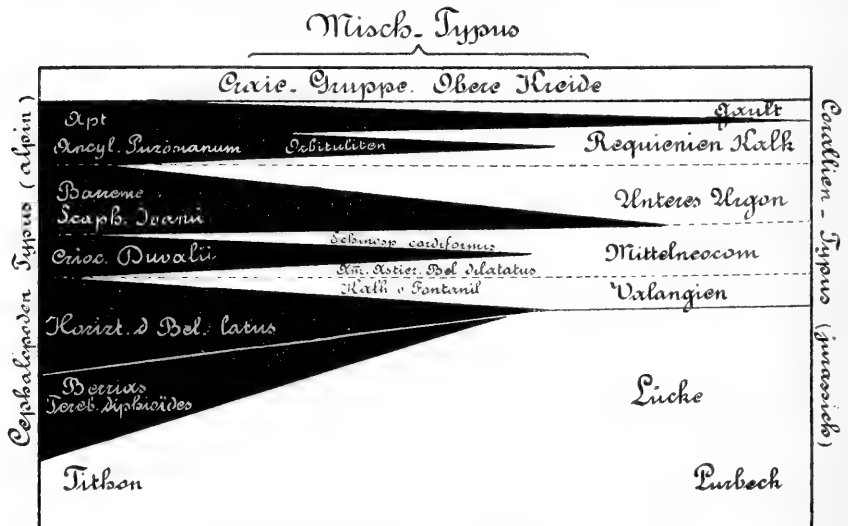 Misch-Typus
Craie-Gruppe. Obere Kreide
Cephalopoden Typus (alpin)
Corallien-Typus (jurassich)
Apt
Gault
Ancyl. Puzosianum
Orbituliten
Requienien Kalk
Barreme
Scaph. Ivanii
Unteres Urgon
Echinosp cordiformis
Crioc. Duvalii
Mittelneocom
Am. Astier. Bel dilatatus
Kalk v Fontanil
Valangien
Horizt. d Bel. latus
Berrias
Tereb. diphioïdes
Lücke
Tithon
Purbeck